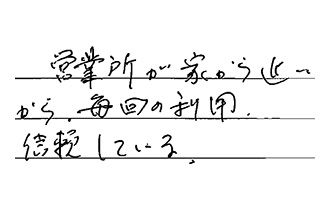 営業所が家から近い
から、毎回の利用、
信頼している。